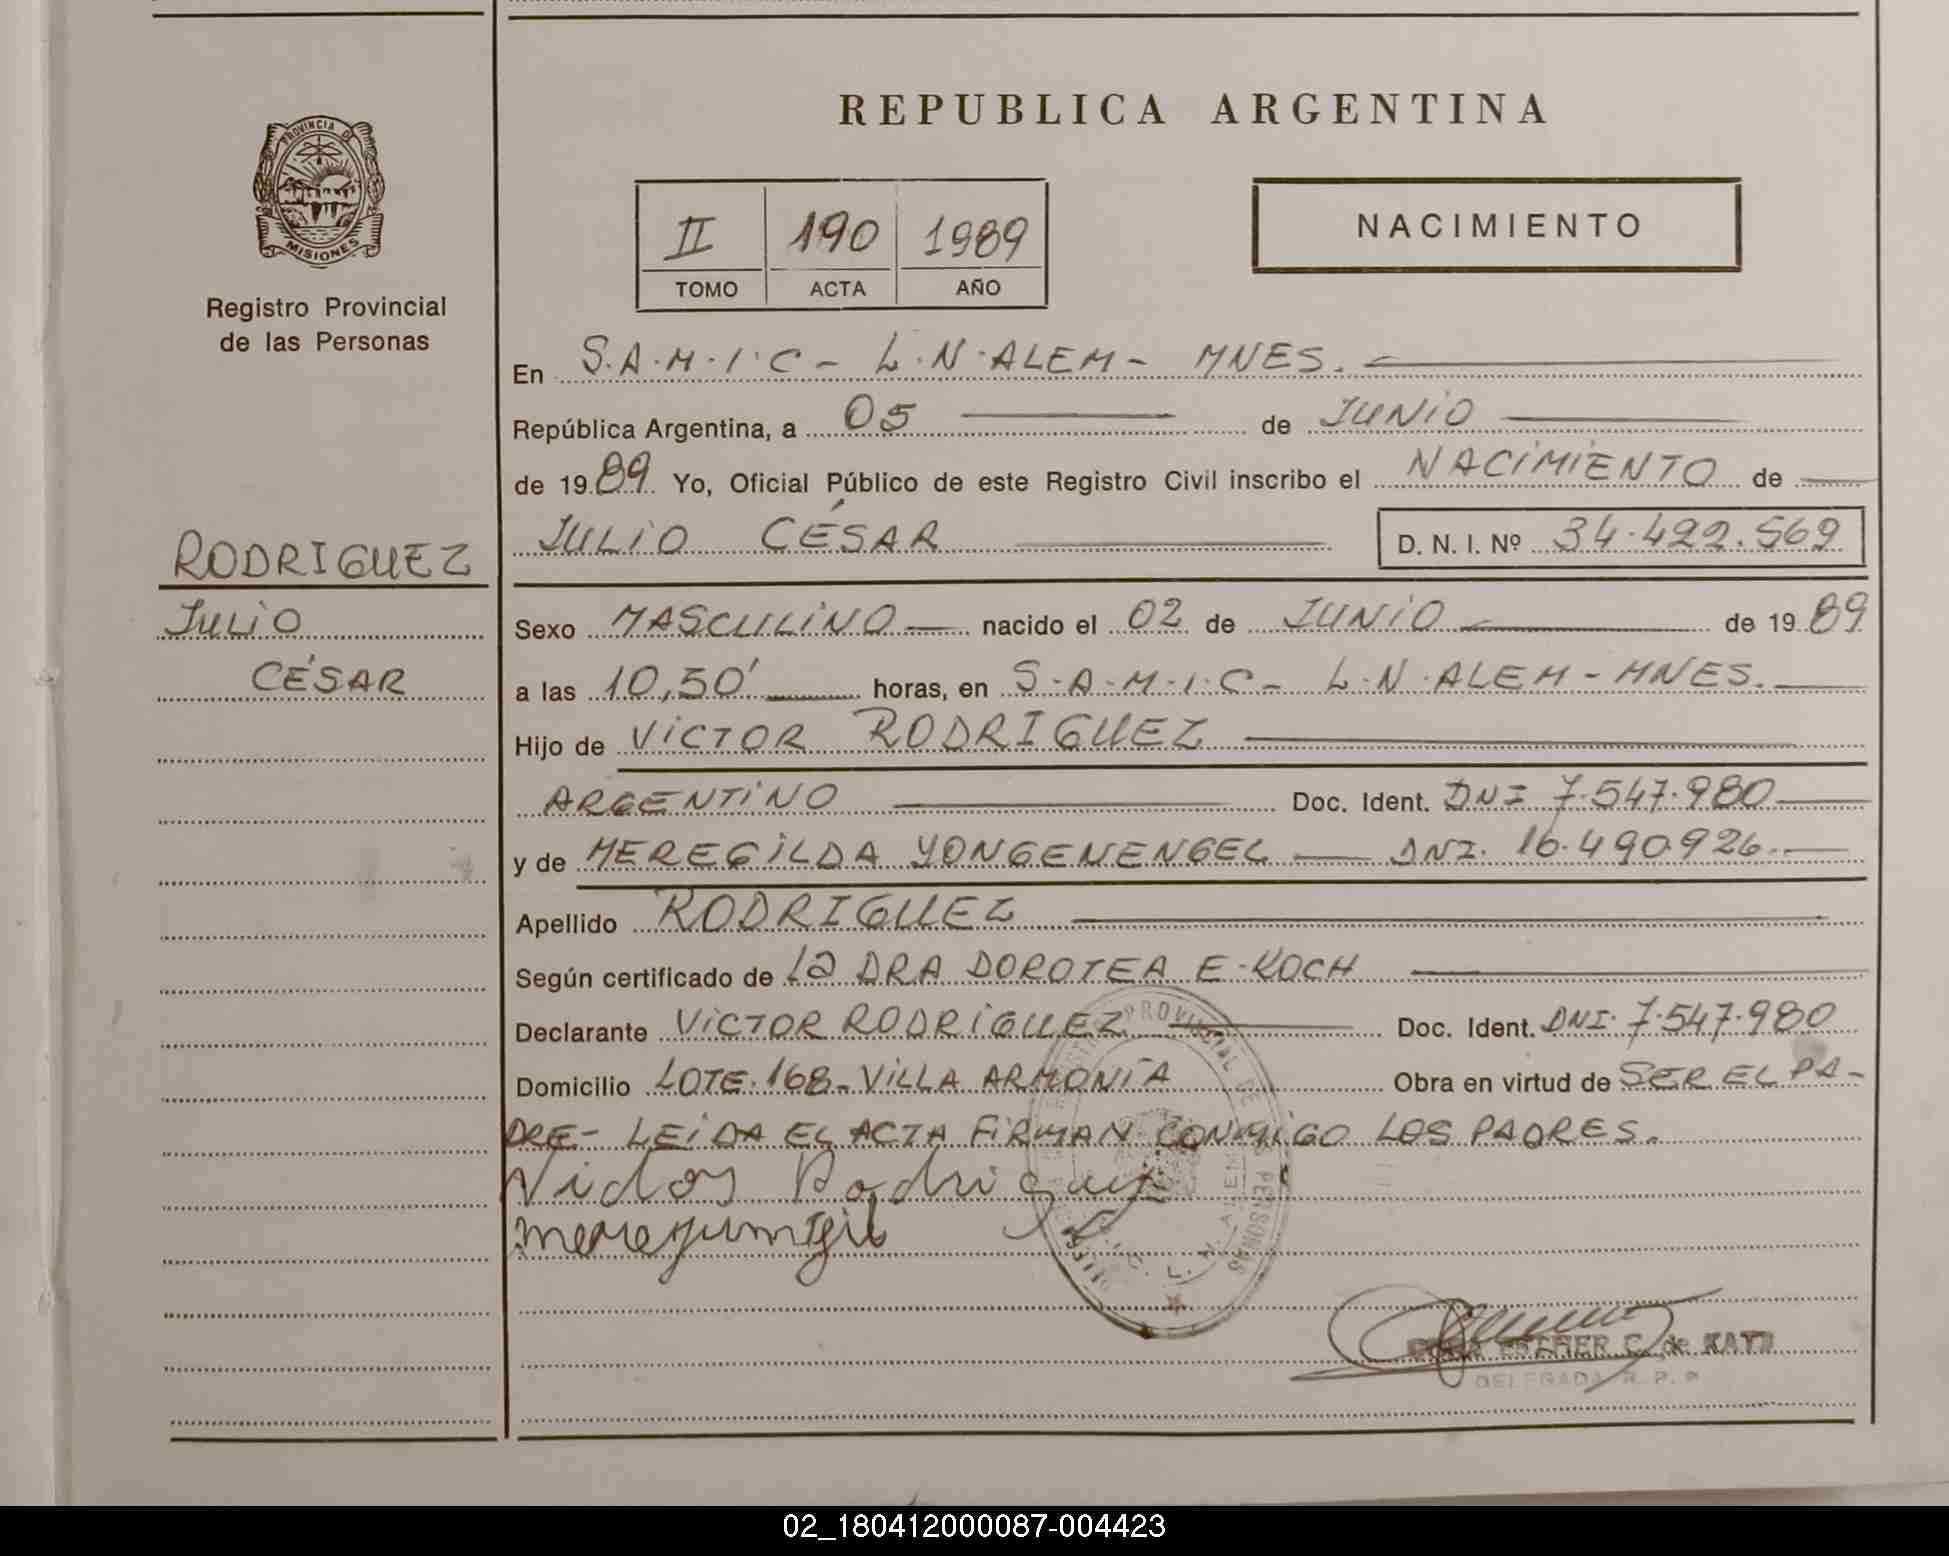 REPUBLICA ARGENTINA
PROVINCIA DE
MISIONES
Registro Provincial
de las Personas
II 190 1989
TOMO ACTA AÑO
NACIMIENTO
En S.A.M.I.C - L.N.ALEM - MNES.
República Argentina, a 05 de JUNIO
de 1989 Yo, Oficial Público de este Registro Civil inscribo el NACIMIENTO de
JULIO CÉSAR D. N. I. Nº 34.422.569
RODRIGUEZ
JULIO
CÉSAR
Sexo MASCULINO nacido el 02 de JUNIO de 1989
a las 10,50' horas, en S.A.M.I.C - L.N.ALEM - MNES.
Hijo de VICTOR RODRIGUEZ
ARGENTINO Doc. Ident. DNI 7.547.980
y de MEREGILDA YONGENENGEL DNI. 16.490.926.
Apellido RODRIGUEZ
Según certificado de la DRA DOROTEA E. KOCH
Declarante VICTOR RODRIGUEZ Doc. Ident. DNI. 7.547.980
Domicilio LOTE. 168 - VILLA ARMONIA Obra en virtud de SER EL PA-
DRE - LEIDA EL ACTA FIRMAN CONMIGO LOS PADRES.
Rodriguez
PROVINCIAL DE PERSONAS
L. N. ALEM
ESTHER C. de KATZ
DELEGADA R. P. P
02_180412000087-004423